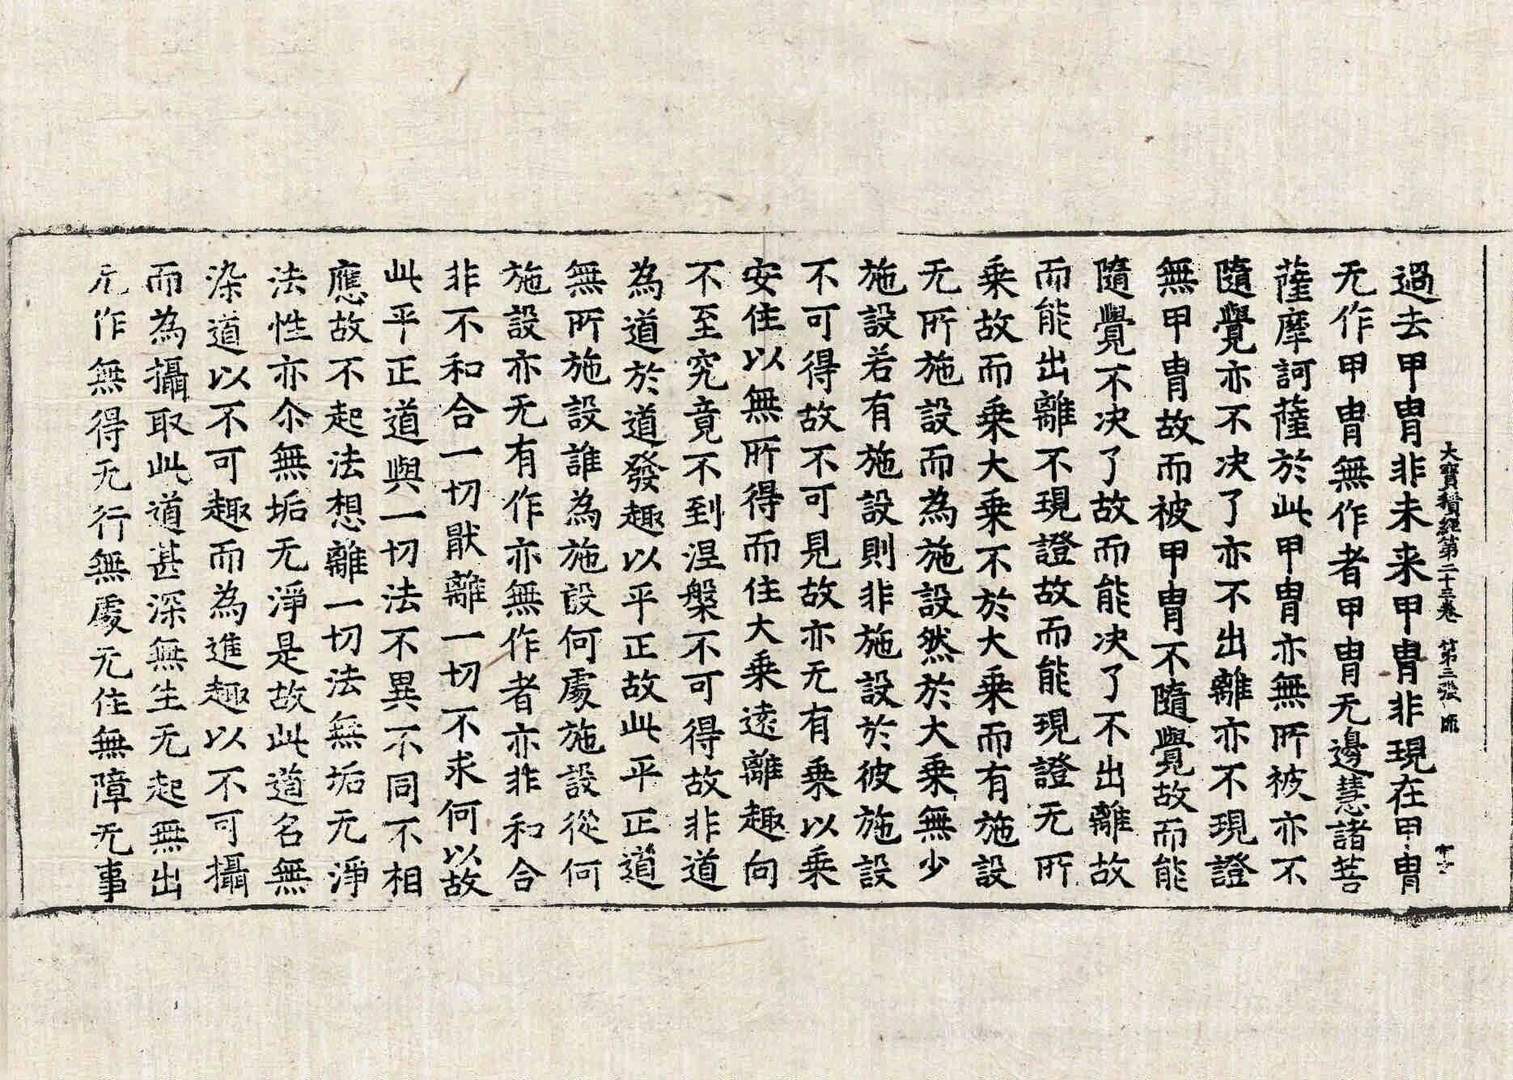 大寶積經第二十三卷　第三張　師
過去甲冑非未来甲冑非現在甲冑
无作甲冑無作者甲冑无邊慧諸菩
薩摩訶薩於此甲冑亦無所被亦不
隨覺亦不决了亦不出離亦不現證
無甲冑故而被甲冑不隨覺故而能
隨覺不决了故而能决了不出離故
而能出離不現證故而能現證无所
乘故而乘大乘不於大乘而有施設
无所施設而為施設然於大乘無少
施設若有施設則非施設於彼施設
不可得故不可見故亦无有乘以乘
安住以無所得而住大乘遠離趣向
不至究竟不到涅槃不可得故非道
為道於道發趣以平正故此平正道
無所施設誰為施設何處施設從何
施設亦无有作亦無作者亦非和合
非不和合一切猒離一切不求何以故
此平正道與一切法不異不同不相
應故不起法想離一切法無垢无淨
法性亦尒無垢无淨是故此道名無
染道以不可趣而為進趣以不可攝
而為攝取此道甚深無生无起無出
无作無得无行無處无住無障无事